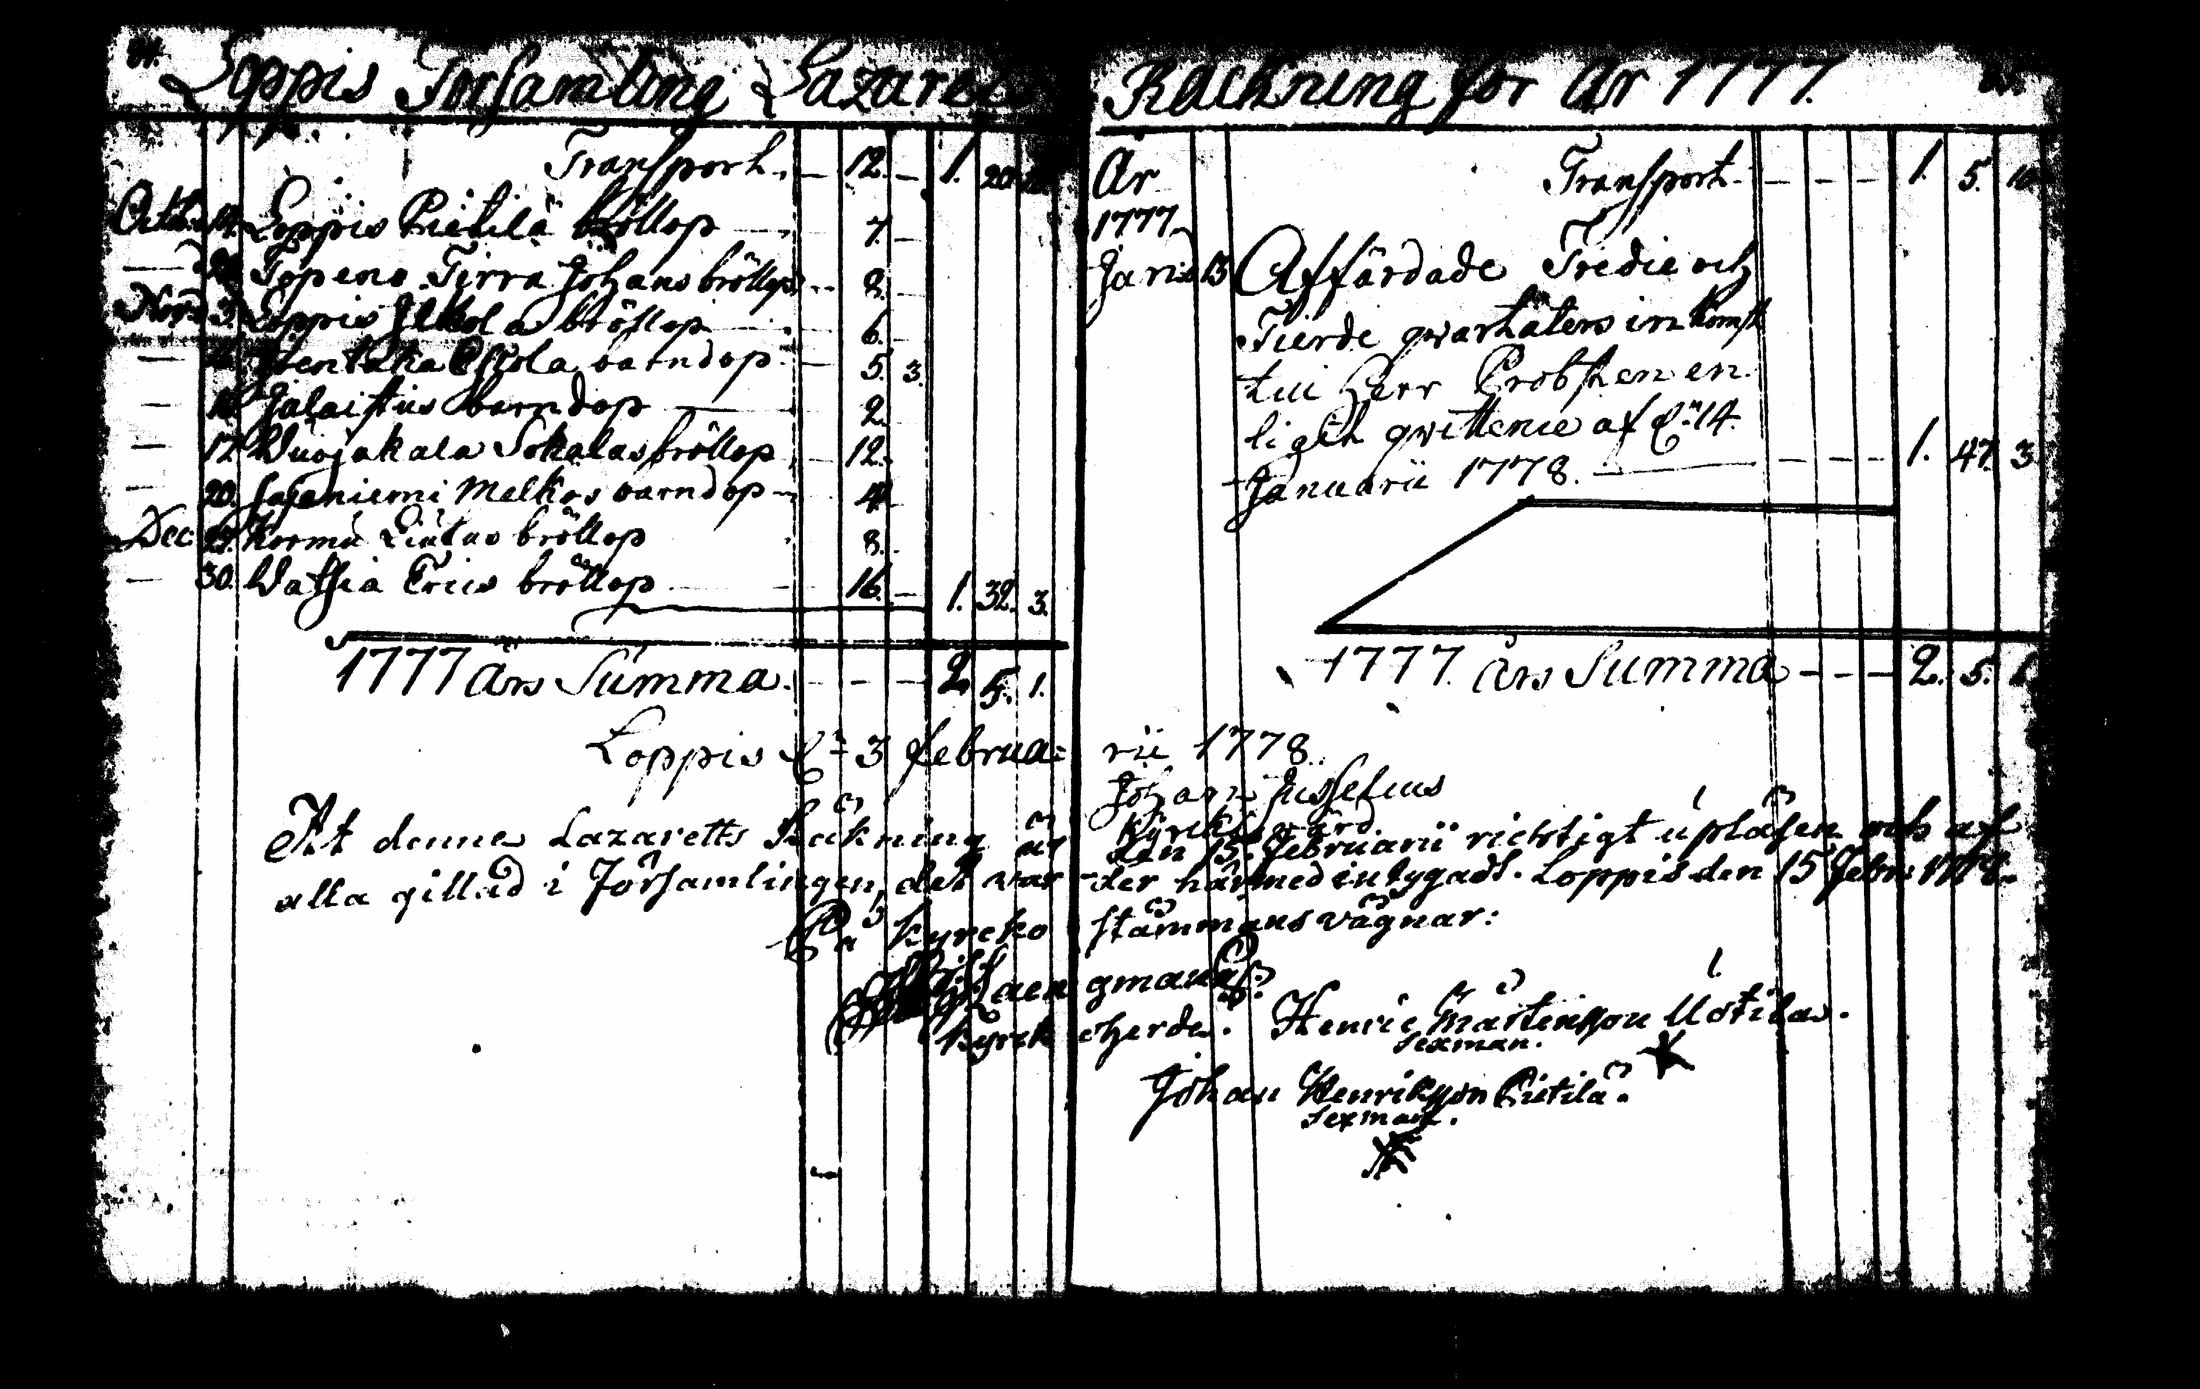 84. Loppis Forsamling Lazarets Räckning for År 1777.
Transport. 12. 1. 20.
Octb. 14. Loppis Pietilä bröllop 7.
Topeno Tirra Johans bröllop 8.
Novb 3. Loppis Ilkola bröllop 6.
Eskola barndop 5. 3.
Jalaistus barndop 2.
17. Wuojakala Sokalas bröllop 12.
20. Sajaniemi Melkas barndop 4.
Dec. Kormu Liutus bröllop 8.
30. Watsia Eriis bröllop 16. 1. 32. 3.
1777 års Summa. 2. 5. 1.
År Transport. 1. 5. 10.
1777.
Janu: 13 Affärdade Tredie och
Fierde qwartalens inkomst
till Herr Probsten en
ligit qwittence af d: 14.
Januarii 1778. 1. 47. 3.
1777. års Summa 2. 5. 1.
Loppis d: 3 februarii 1778.
Johan Jusselius
Kyrckowärd
At denna Lazaretts Räkning är den 15. Februarii richtigt upläsen och af
alla gillad i Församlingen, det warder härmed intygadt. Loppis den 15 Febr: 1778.
På Kyrcko stämmans vägnar:
Laengman
Kyrckoherde. Henric Mårtensson Uotila.
Sexman.
Johan Henriksson Pietilä.
Sexman.